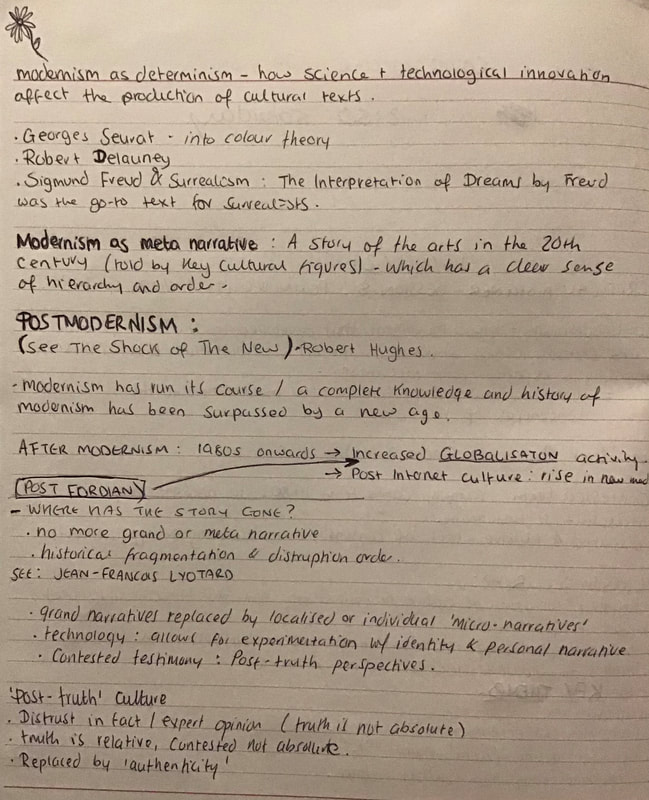 modernism as determinism - how science + technological innovation
affect the production of cultural texts.
· Georges Seurat - into colour theory
· Robert Delauney
· Sigmund Freud & Surrealism : The Interpretation of Dreams by Freud
was the go-to text for surrealists.
Modernism as meta narrative : A story of the arts in the 20th
century (told by key cultural figures) - which has a clear sense
of hierarchy and order.
POSTMODERNISM :
(see The Shock of The New) - Robert Hughes.
- modernism has run its course / a complete knowledge and history of
modenism has been surpassed by a new age.
AFTER MODERNISM : 1980s onwards → Increased GLOBALISATON activity.
→ Post Internet culture : rise in new med
POST FORDIAN
- WHERE HAS THE STORY GONE?
· no more grand or meta narrative
· historical fragmentation & distruption order.
SEE: JEAN-FRANCOIS LYOTARD
· grand narratives replaced by localised or individual 'micro-narratives'
· technology : allows for experimentation w/ identity & personal narrative
· Contested testimony : Post-truth perspectives.
'Post-truth' culture
· Distrust in fact / expert opinion (truth is not absolute)
· truth is relative, contested not absolute.
· Replaced by 'authenticity'